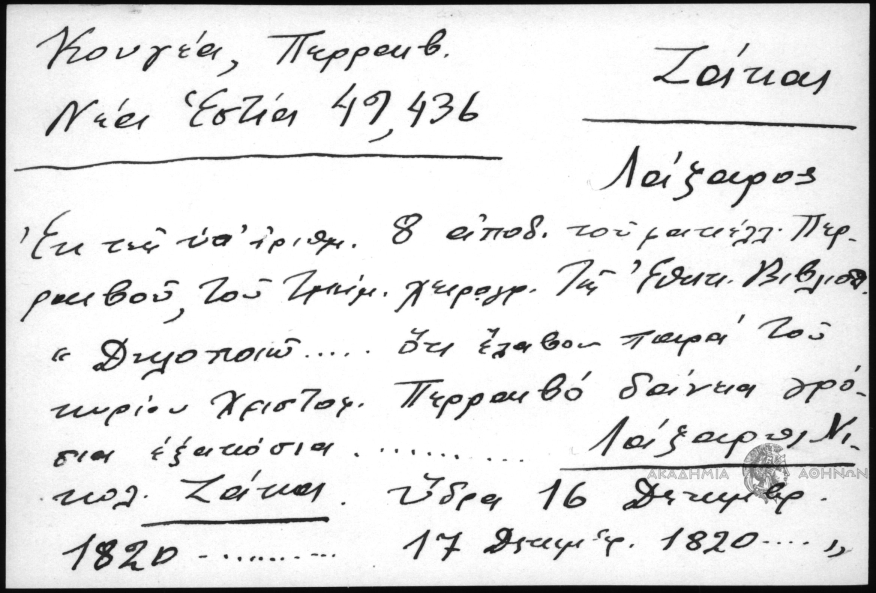 Κουγέα, Περραιβ.
Νέα Ἑστία 49, 436
Ζάκας
Λάζαρος
Ἐκ τῆς ὑπ' ἀριθμ. 8 ἀποδ. τοῦ Περ-
ραιβοῦ, τοῦ τμήμ. χειρογρ. τῆς Ἐθνικ. Βιβλιοθ.
" Δηλοποιῶ..... ὅτι ἔλαβον παρὰ τοῦ
κυρίου Χριστοφ. Περραιβό δάνεια γρό-
σια ἑξακόσια ............. Λάζαρος Νι-
κολ. Ζάκας. Ὕδρα 16 Δεκεμβρ.
1820 ............ 17 Δεκεμβρ. 1820 .... "
ΑΚΑΔΗΜΙΑ ΑΘΗΝΩΝ